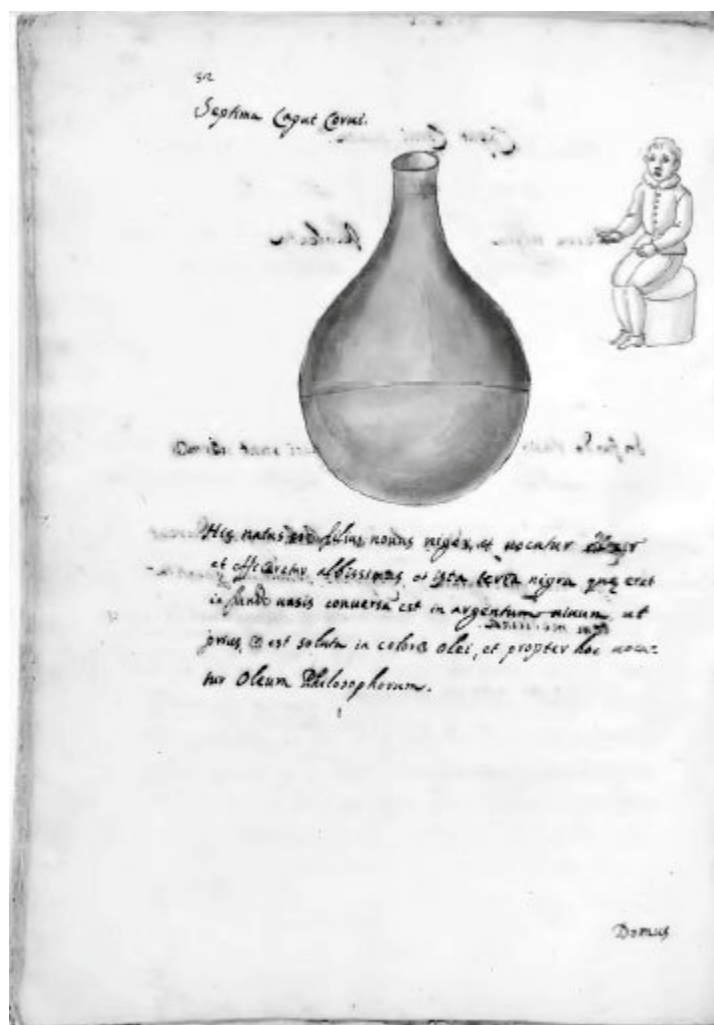 32
Septima Caput Corvi.
Hic natus est filius novus niger, et vocatur Elixir
et efficeretur albissimus, et ista terra nigra quę erat
in fundo vasis conversa est in argentum vivum, ut
prius, et est soluta in colorē olei, et propter hoc voca-
tur Oleum Philosophorum.
Domus